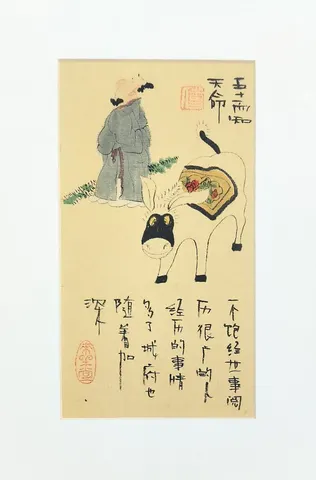 五十而知
天命
一个饱经世事阅
历很广的人
经历的事情
多了城府也
随着加
深